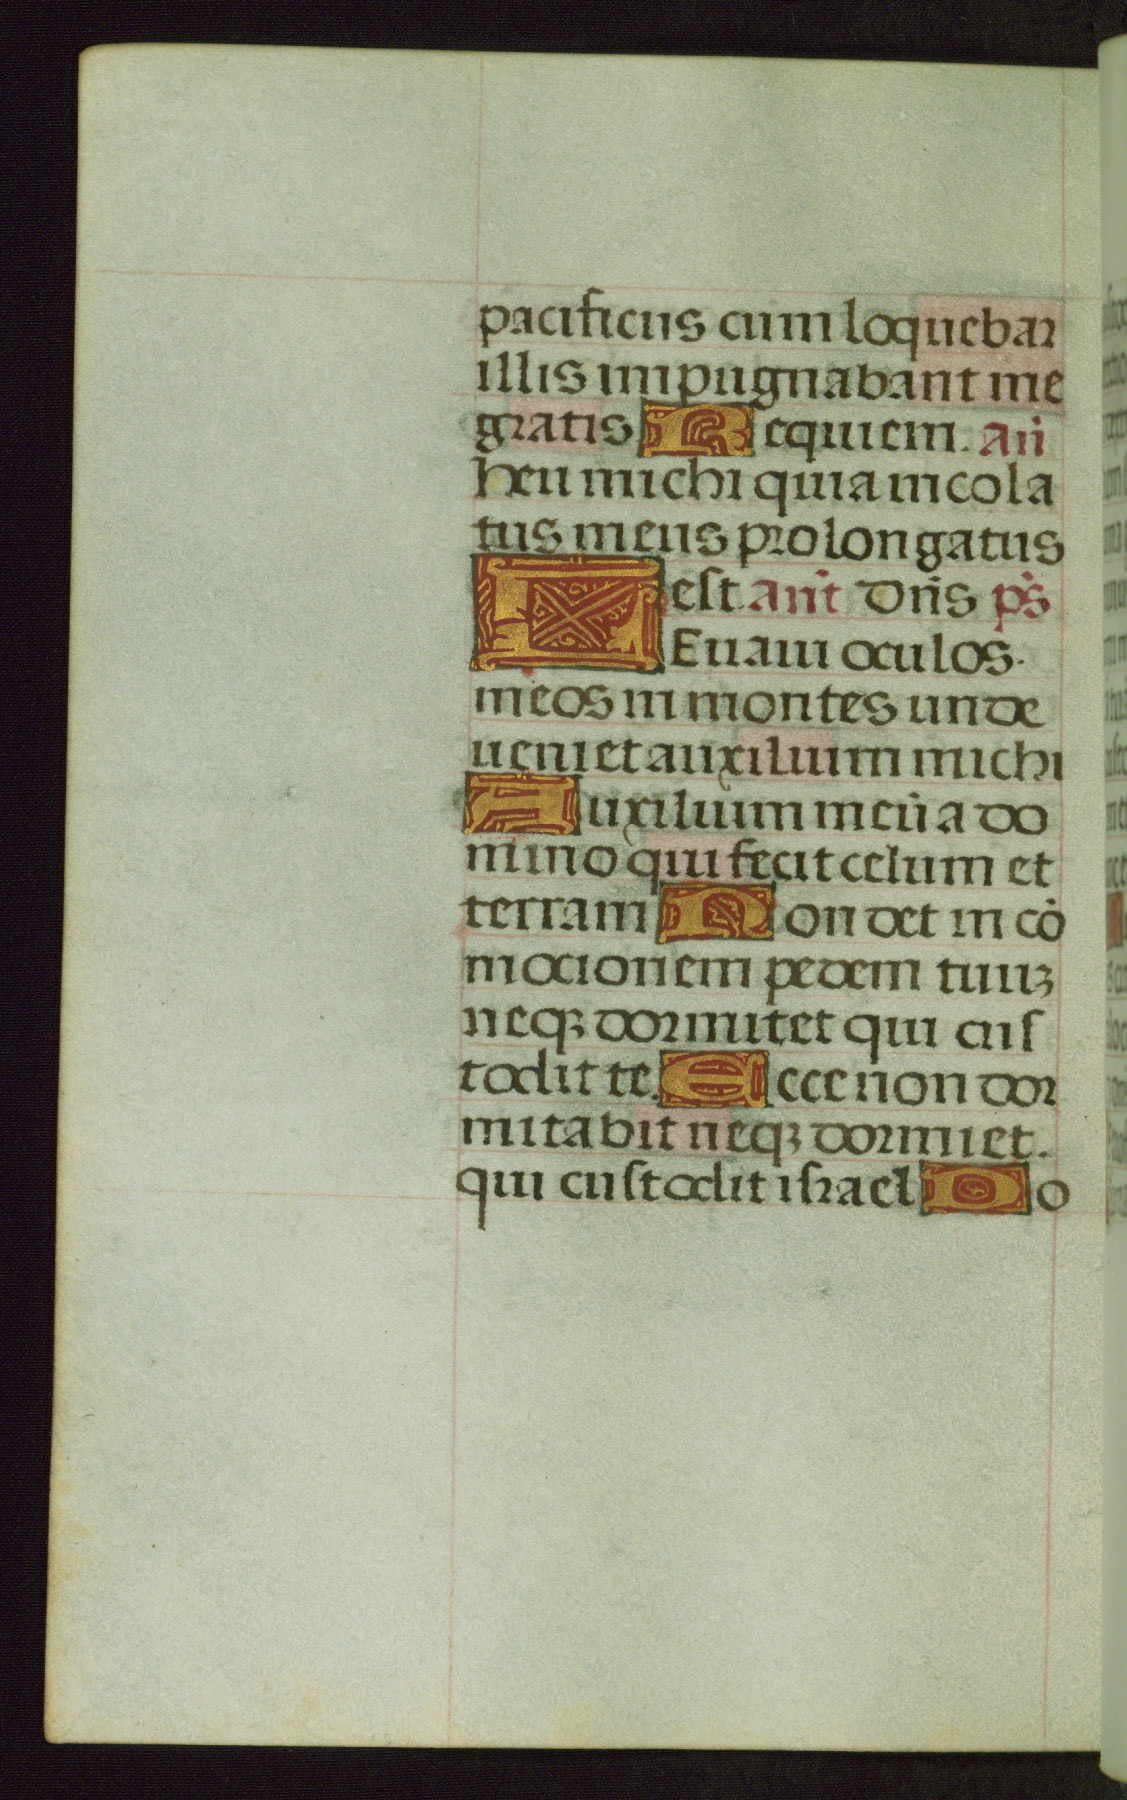 pacificus cum loquebar
illis impugnabant me
gratis Requiem. an̄
heu michi quia incola
tus meus prolongatus
est ant̄ dn̄s ps̄
LEuaui oculos.
meos in montes unde
ueniet auxilium michi
Auxilium meū a do
mino qui fecit celum et
terram Non det in cō
mocionem pedem tuuꝫ
neqꝫ dormitet qui cuſ
todit te. Ecce non dor
mitabit neqꝫ dormiet.
qui cuſtodit iſrael Do